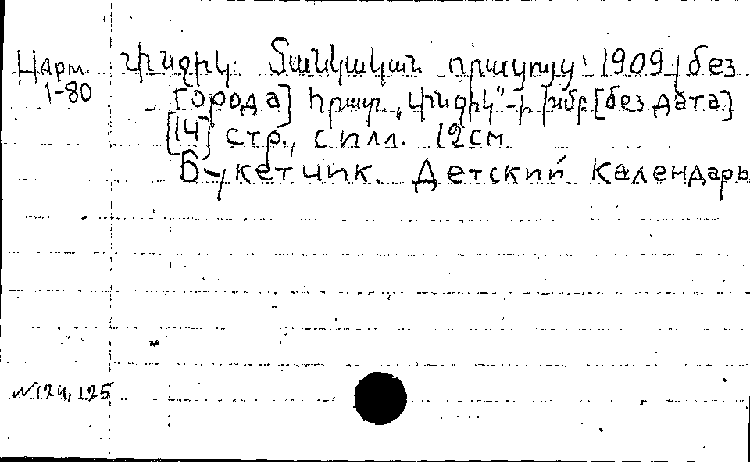 Царм Փնջիկ. Մանկական օրացոյց 1909, [без
1-80 города] հրատ. „Փնջիկ"-ի խմբ. [без дата]
[14] стр., с илл. 12 см
Букетчик. Детский календарь
N124, 125